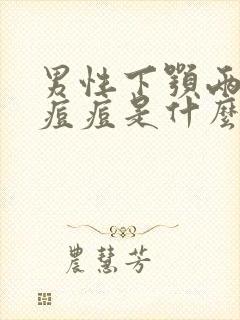 男性下顎兩
痘痘是什麼
農慧芳